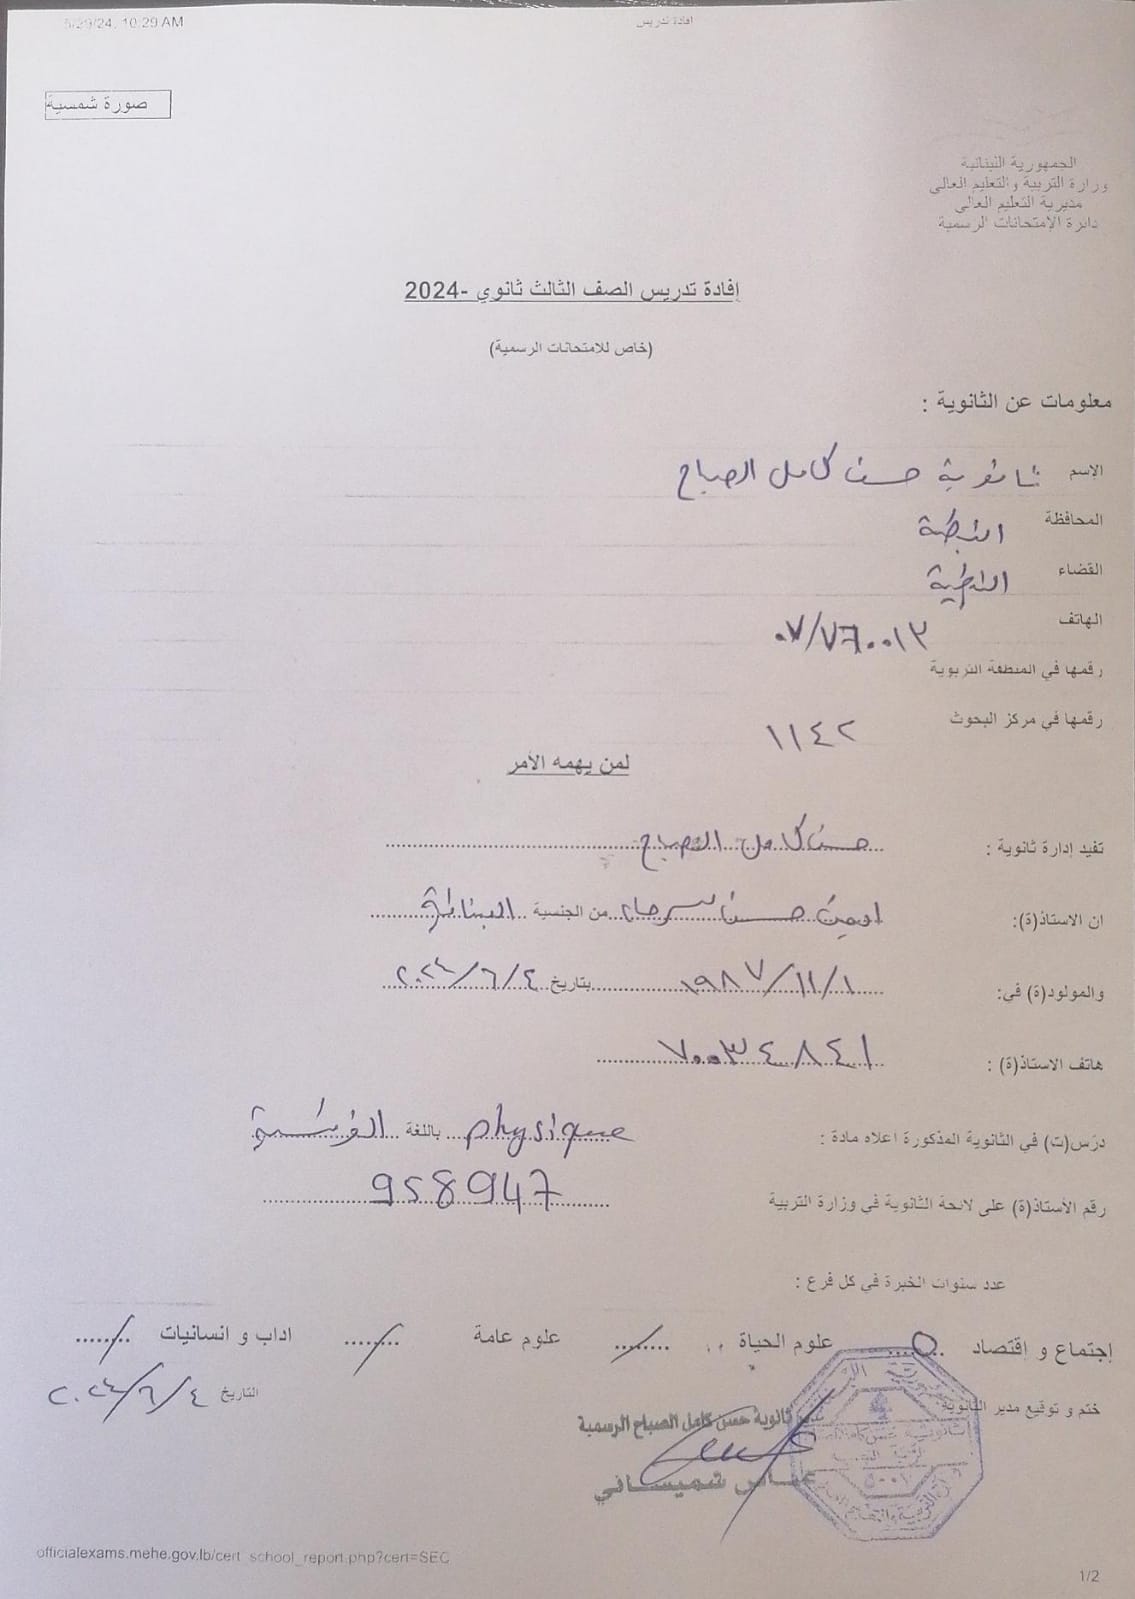 5/29/24, 10:29 AM
افادة تدريس
صورة شمسية
الجمهورية اللبنانية
وزارة التربية والتعليم العالي
مديرية التعليم العالي
دائرة الإمتحانات الرسمية
إفادة تدريس الصف الثالث ثانوي -2024
(خاص للامتحانات الرسمية)
معلومات عن الثانوية :
الإسم ثانوية حسن كامل الصباح
المحافظة النبطية
القضاء النبطية
الهاتف ٠٧/٧٦٠٠١٣
رقمها في المنطقة التربوية
رقمها في مركز البحوث ١١٤٢
لمن يهمه الأمر
تفيد إدارة ثانوية : حسن كامل الصباح
ان الاستاذ(ة): حسن من الجنسية اللبنانية
والمولود(ة) في: ١٩٨٧/١١/١ بتاريخ ٢٠٢٤/٦/٤
هاتف الاستاذ(ة) : ٧٠٠٣٤٨٤١
درّس(ت) في الثانوية المذكورة اعلاه مادة : physique باللغة الفرنسية
رقم الأستاذ(ة) على لائحة الثانوية في وزارة التربية 958947
عدد سنوات الخبرة في كل فرع :
إجتماع و إقتصاد ٥ علوم الحياة / علوم عامة / اداب و انسانيات /
التاريخ ٢٠٢٤/٦/٤
ختم و توقيع مدير الثانوية
ثانوية حسن كامل الصباح الرسمية
عباس شميساني
officialexams.mehe.gov.lb/cert_school_report.php?cert=SEC
1/2